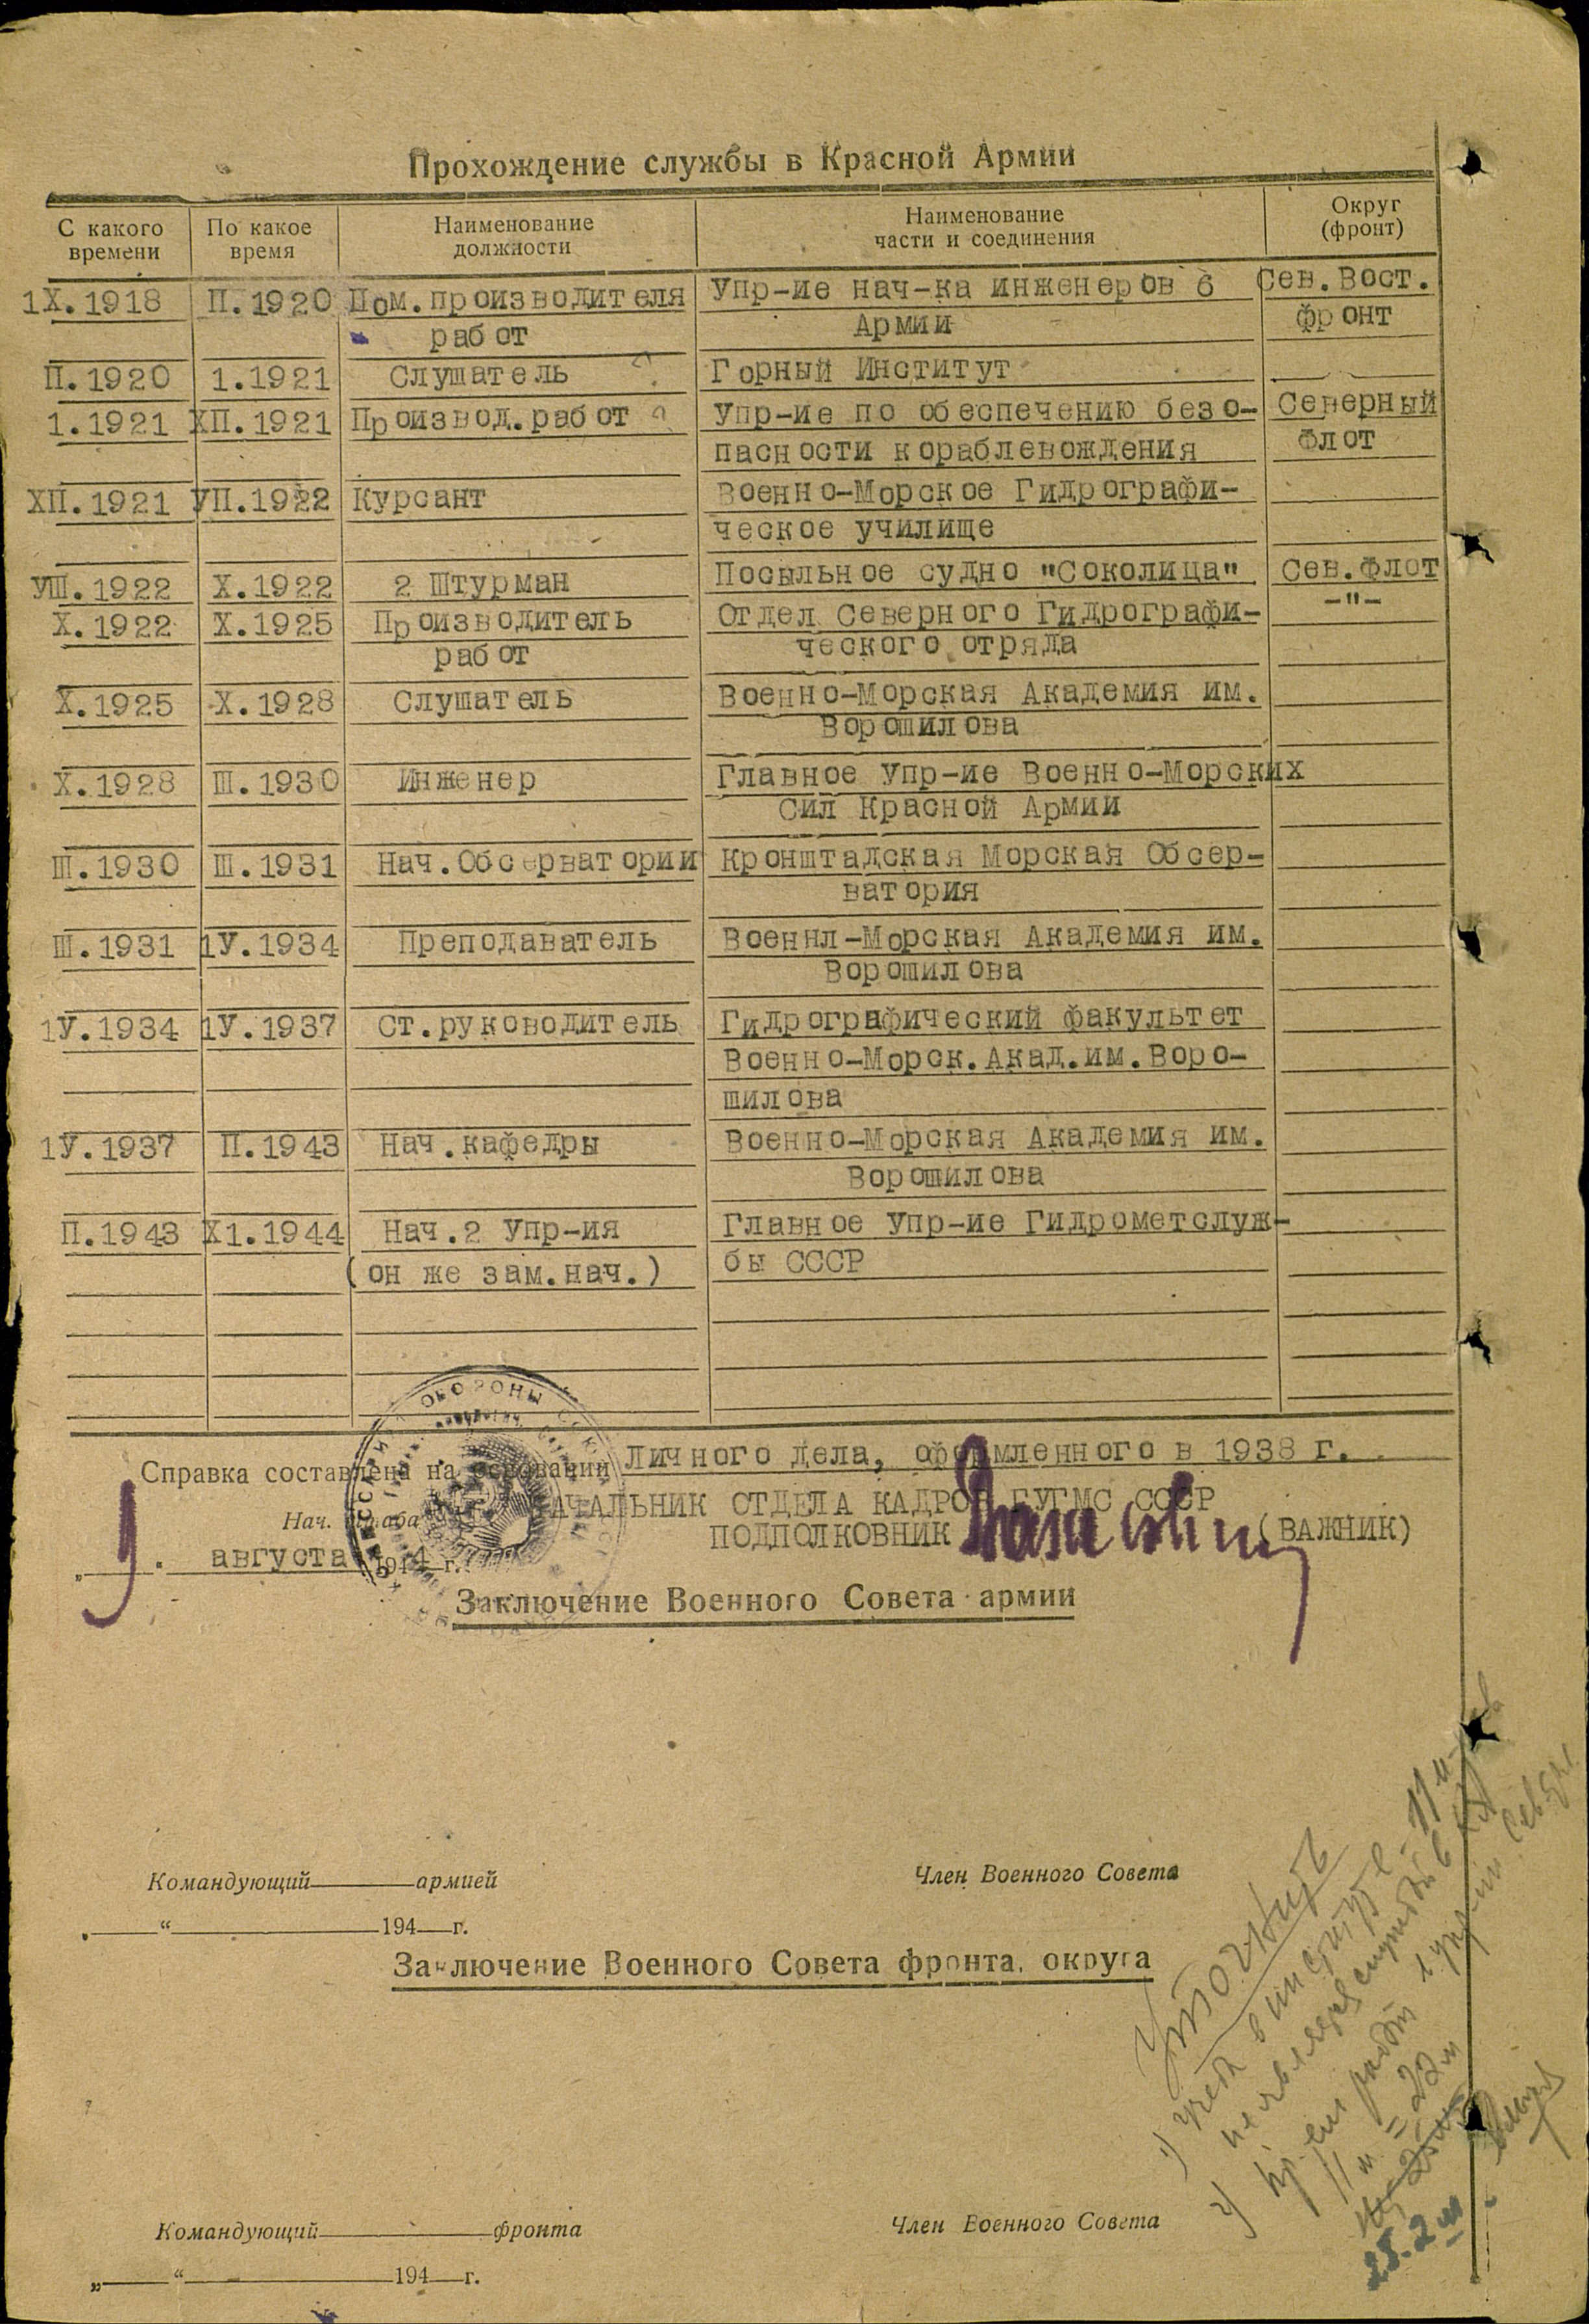 Прохождение службы в Красной Армии
С какого времени | По какое время | Наименование должности | Наименование части и соединения | Округ (фронт)
1Х.1918 | П.1920 | Пом.производителя | Упр-ие нач-ка инженеров 6 | Сев.Вост.
работ | Армии | фронт
П.1920 | 1.1921 | Слушатель | Горный Институт
1.1921 | ХП.1921 | Производ.работ | Упр-ие по обеспечению безо- | Северный
пасности кораблевождения | Флот
ХП.1921 | УП.1922 | Курсант | Военно-Морское Гидрографи-
ческое училище
УШ.1922 | Х.1922 | 2 Штурман | Посыльное судно "Соколица" | Сев.Флот
Х.1922 | Х.1925 | Производитель | Отдел Северного Гидрографи- | -"-
работ | ческого отряда
Х.1925 | Х.1928 | Слушатель | Военно-Морская Академия им.
Ворошилова
Х.1928 | Ш.1930 | Инженер | Главное Упр-ие Военно-Морских
Сил Красной Армии
Ш.1930 | Ш.1931 | Нач.Обсерватории | Кронштадская Морская Обсер-
ватория
Ш.1931 | 1У.1934 | Преподаватель | Военнл-Морская Академия им.
Ворошилова
1У.1934 | 1У.1937 | Ст.руководитель | Гидрографический факультет
Военно-Морск.Акад.им.Воро-
шилова
1У.1937 | П.1943 | Нач.кафедры | Военно-Морская Академия им.
Ворошилова
П.1943 | Х1.1944 | Нач.2 Упр-ия | Главное Упр-ие Гидрометслуж-
(он же зам.нач.) | бы СССР
ОБОРОНЫ
Справка составлена на основании Личного дела, оформленного в 1938 г.
Нач. штаба НАЧАЛЬНИК ОТДЕЛА КАДРОВ ГУГМС СССР
ПОДПОЛКОВНИК (ВАЖНИК)
„9. августа 1944 г.
Заключение Военного Совета армии
Командующий армией Член Военного Совета
„ “ 194 г.
Заключение Военного Совета фронта, округа
Уточнить
1) учеба в институте - 11 м-
не является службой в
2)
11 м = 22 м
25.2 м
Командующий фронта Член Военного Совета
„ “ 194 г.